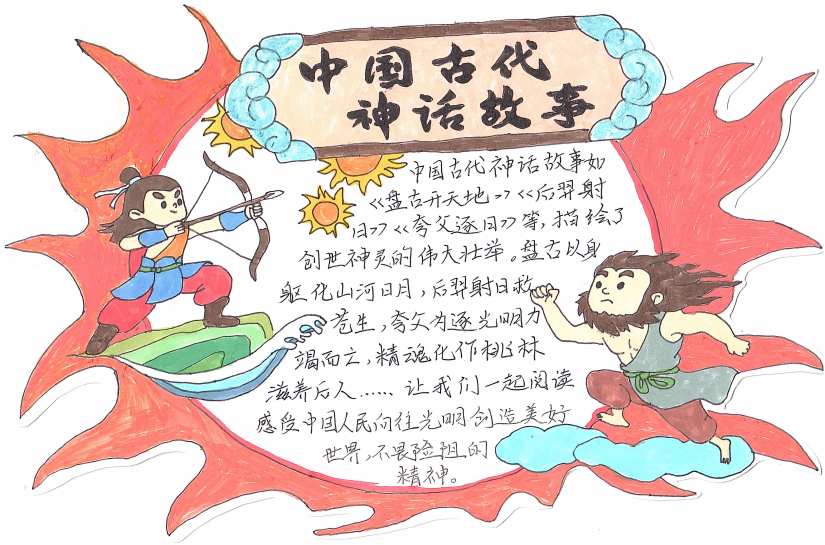 中国古代
神话故事
中国古代神话故事如
《盘古开天地》《后羿射
日》《夸父逐日》等,描绘了
创世神灵的伟大壮举。盘古以身
躯化山河日月,后羿射日救
苍生,夸父为逐光明力
竭而亡,精魂化作桃林
滋养后人……让我们一起阅读
感受中国人民向往光明创造美好
世界,不畏险阻的
精神。